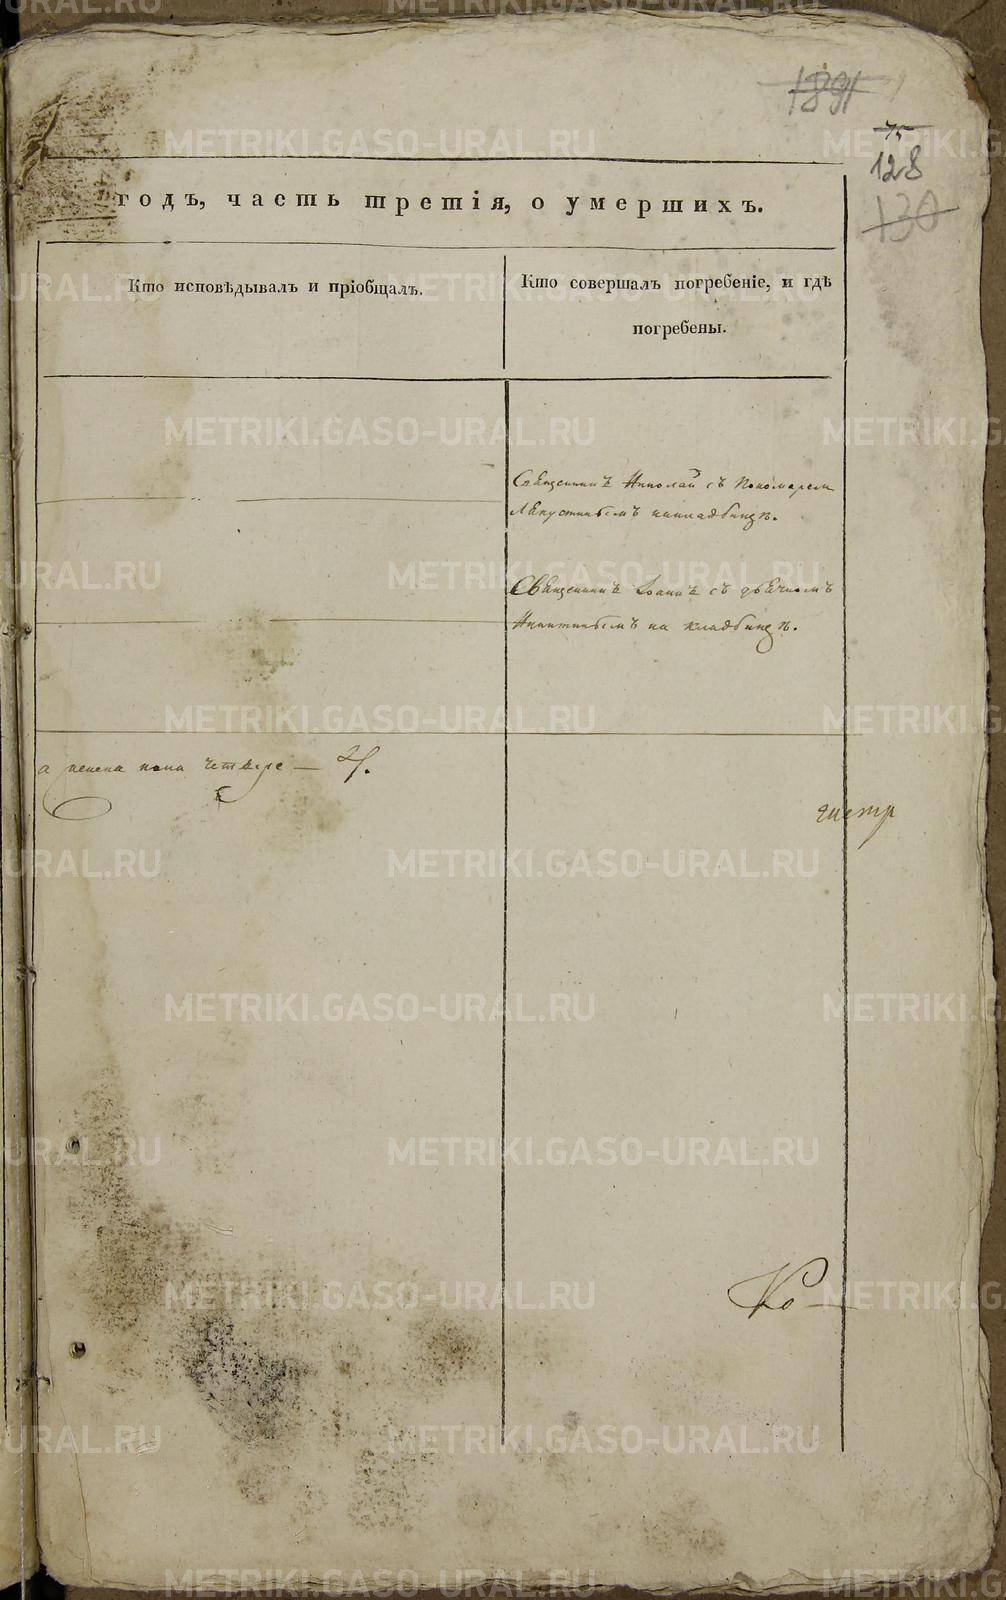 1891
75
128
130
годъ, часть третія, о умершихъ.
Кто исповѣдывалъ и пріобщалъ.
Кто совершалъ погребеніе, и гдѣ
погребены.
Священникъ Николай съ Пономаремъ
на кладбищѣ.
Священникъ Іоаннъ съ дьячкомъ
Никитинымъ на кладбищѣ.
а женска пола четверо — 4.
Ко —
METRIKI.GASO-URAL.RU